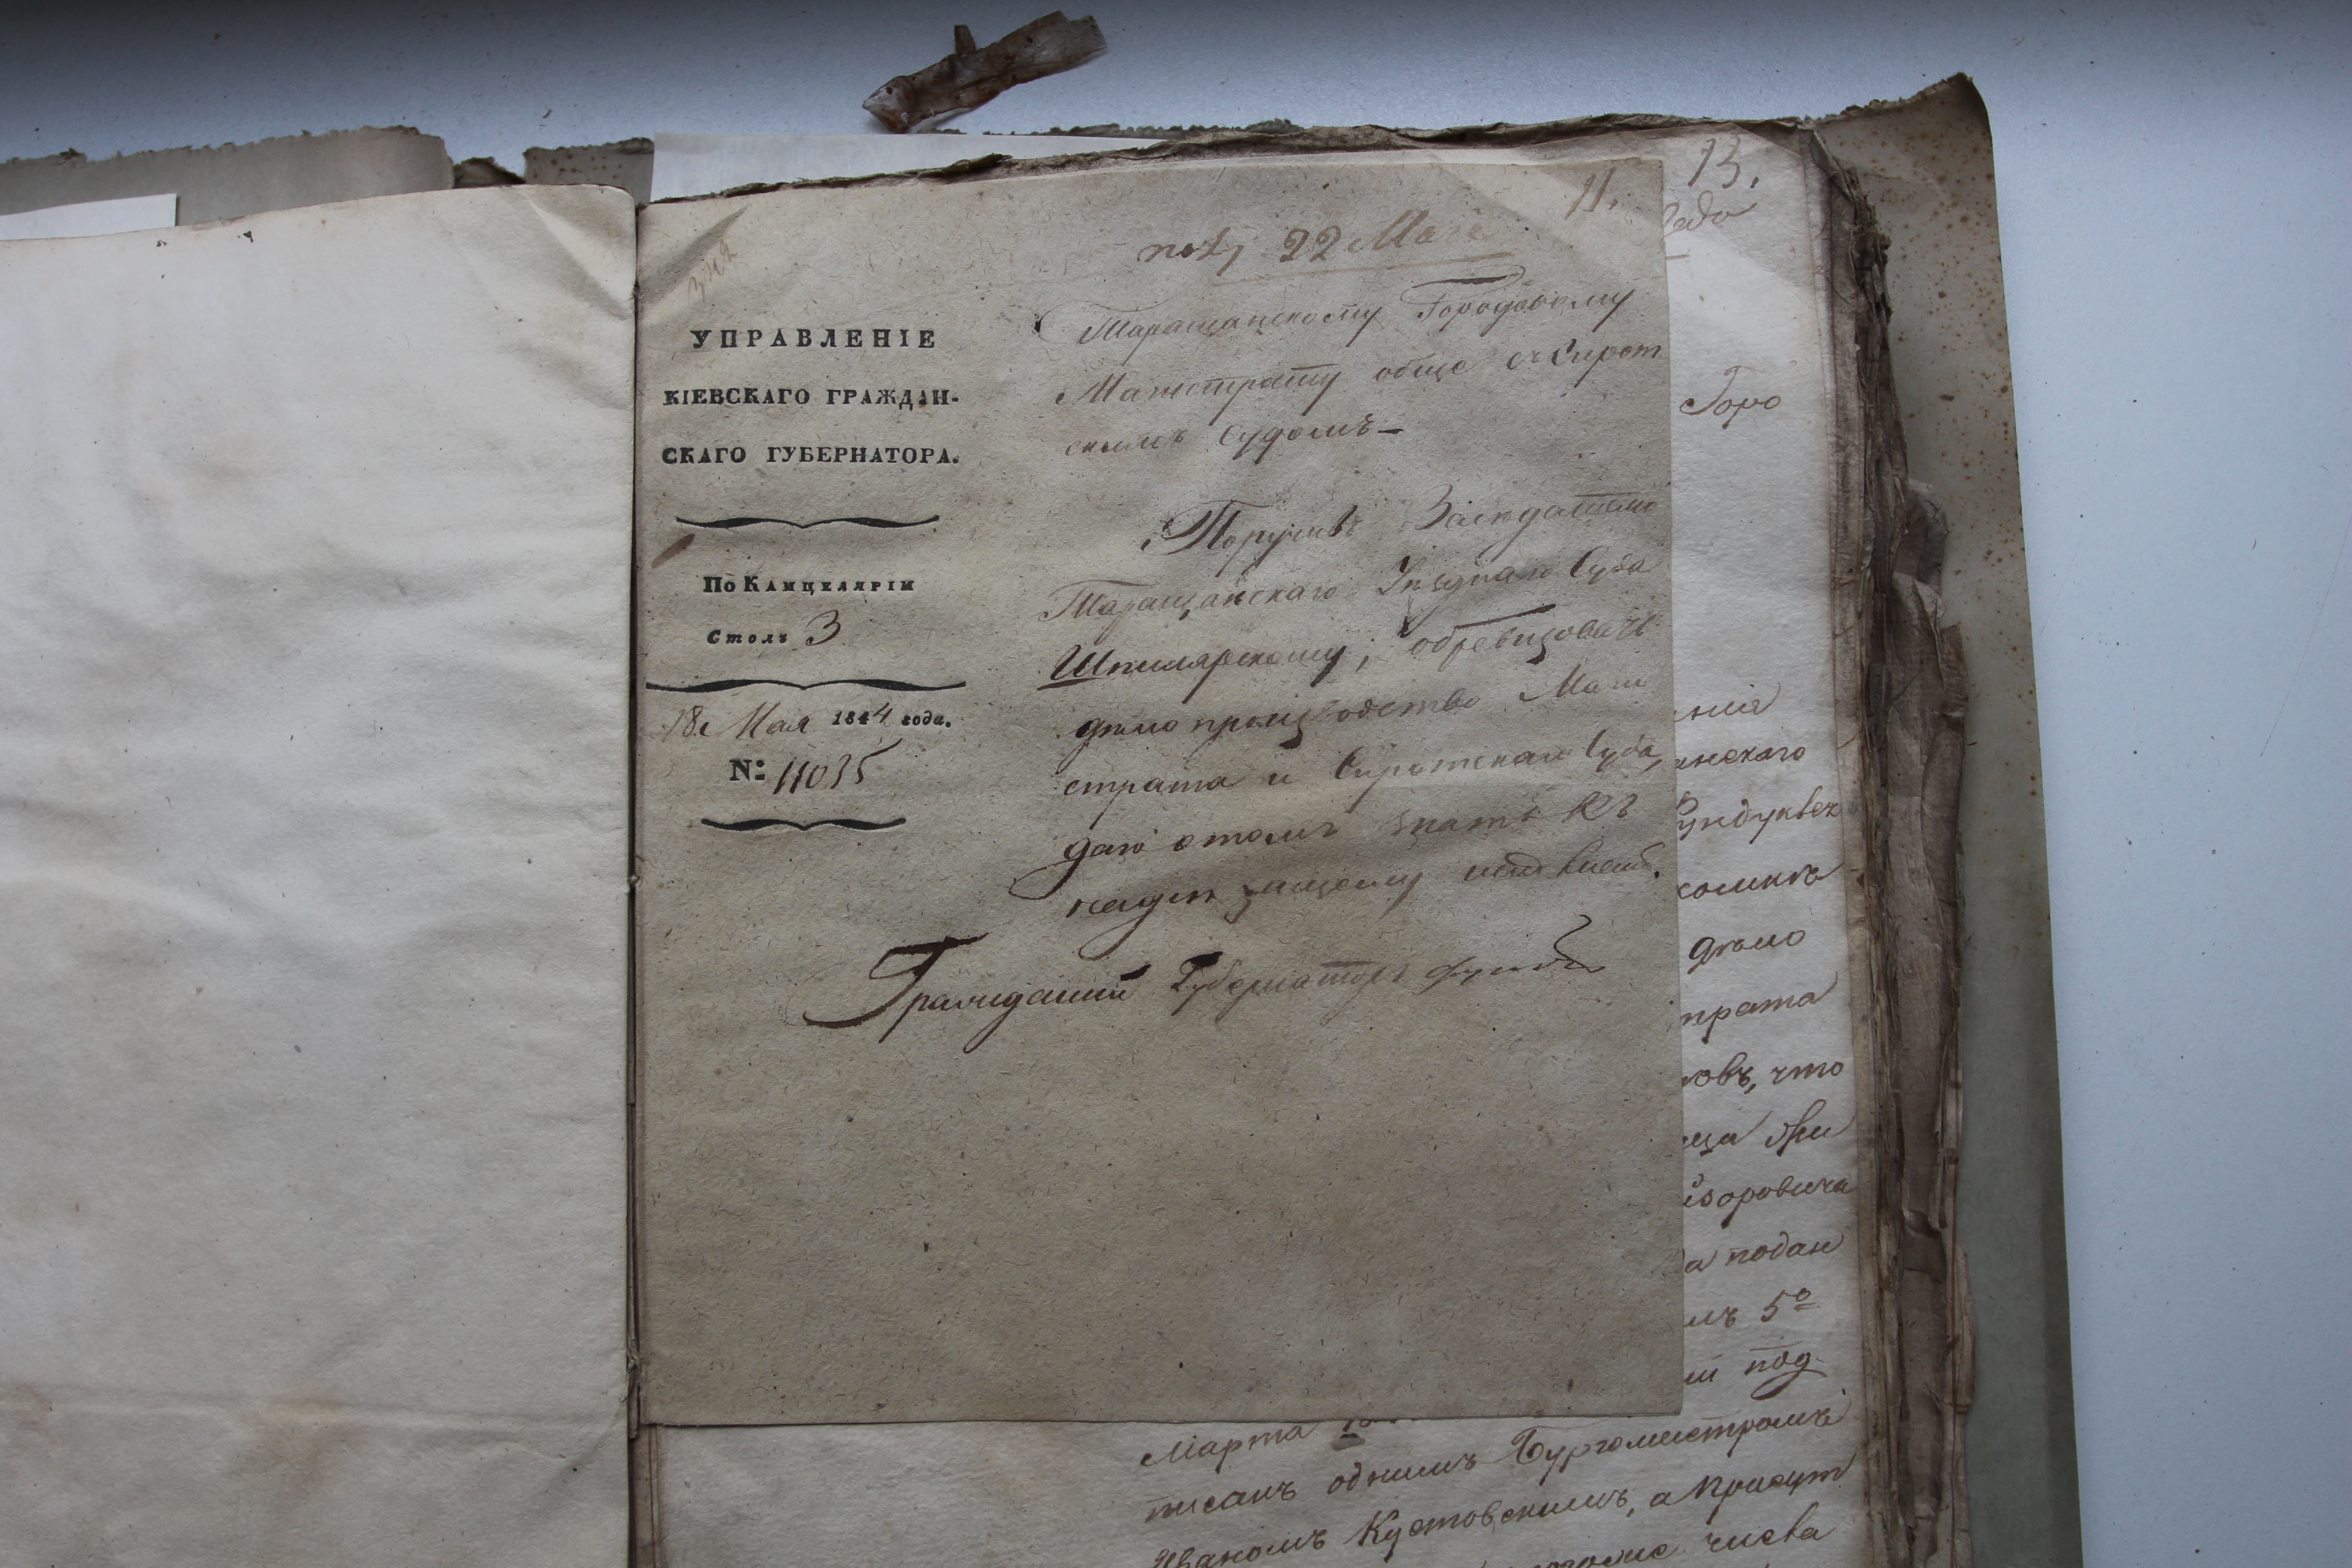 342
11.
13.
пол 22 Мая
УПРАВЛЕНІЕ
КІЕВСКАГО ГРАЖДАН-
СКАГО ГУБЕРНАТОРА.
По Канцеляріи
Столъ 3
18 Мая 1844 года.
№: 11035
Таращанскому Городовому
Магистрату обще съ Сирот
скимъ Судомъ—
Поручивъ Засѣдателю
Таращанскаго Уѣзднаго Суда
Шпилярскому, обревизовать
дѣло производство Маги
страта и Сиротскаго Суда,
даю о томъ знать къ
надлѣжащему исполненію.
Гражданскій Губернаторъ Фундуклей
Горо
янскаго
Фундуклея
дѣло
страта
что
подан
5º
под
Марта
писанъ однимъ Бургомистромъ
Иваномъ Кустовскимъ, а Присут
числа